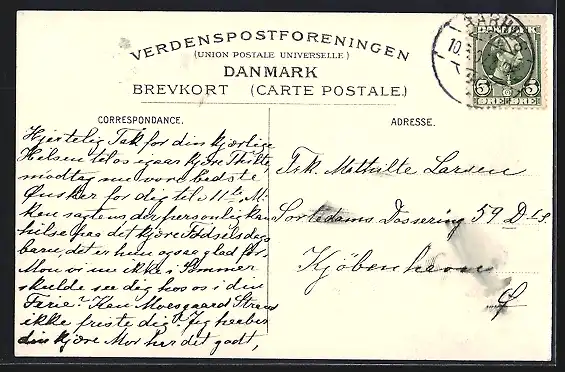 VERDENSPOSTFORENINGEN
(UNION POSTALE UNIVERSELLE)
DANMARK
BREVKORT (CARTE POSTALE)
DANMARK
5 5
ØRE ØRE
AARHUS
10.
CORRESPONDANCE.
ADRESSE.
Hjertelig Tak for din kjærlige
Hilsen til os igaar kjære Thilte,
modtag nu vore bedste
Ønsker for dig til 11te, M.
ken sagtens der personlig kan
hilse fra det kjære Fødselsdags
barn, det er hun ogsaa glad for,
Mon vi nu ikke i Sommer
skulde see dig hos os i din
Ferie? Kan Moesgaard Strand
ikke friste dig? Jeg haaber
din kjære Mor har det godt,
Frk. Mathilte Larsen
Sortedams Dossering 59 D
Kjøbenhavn
Ø